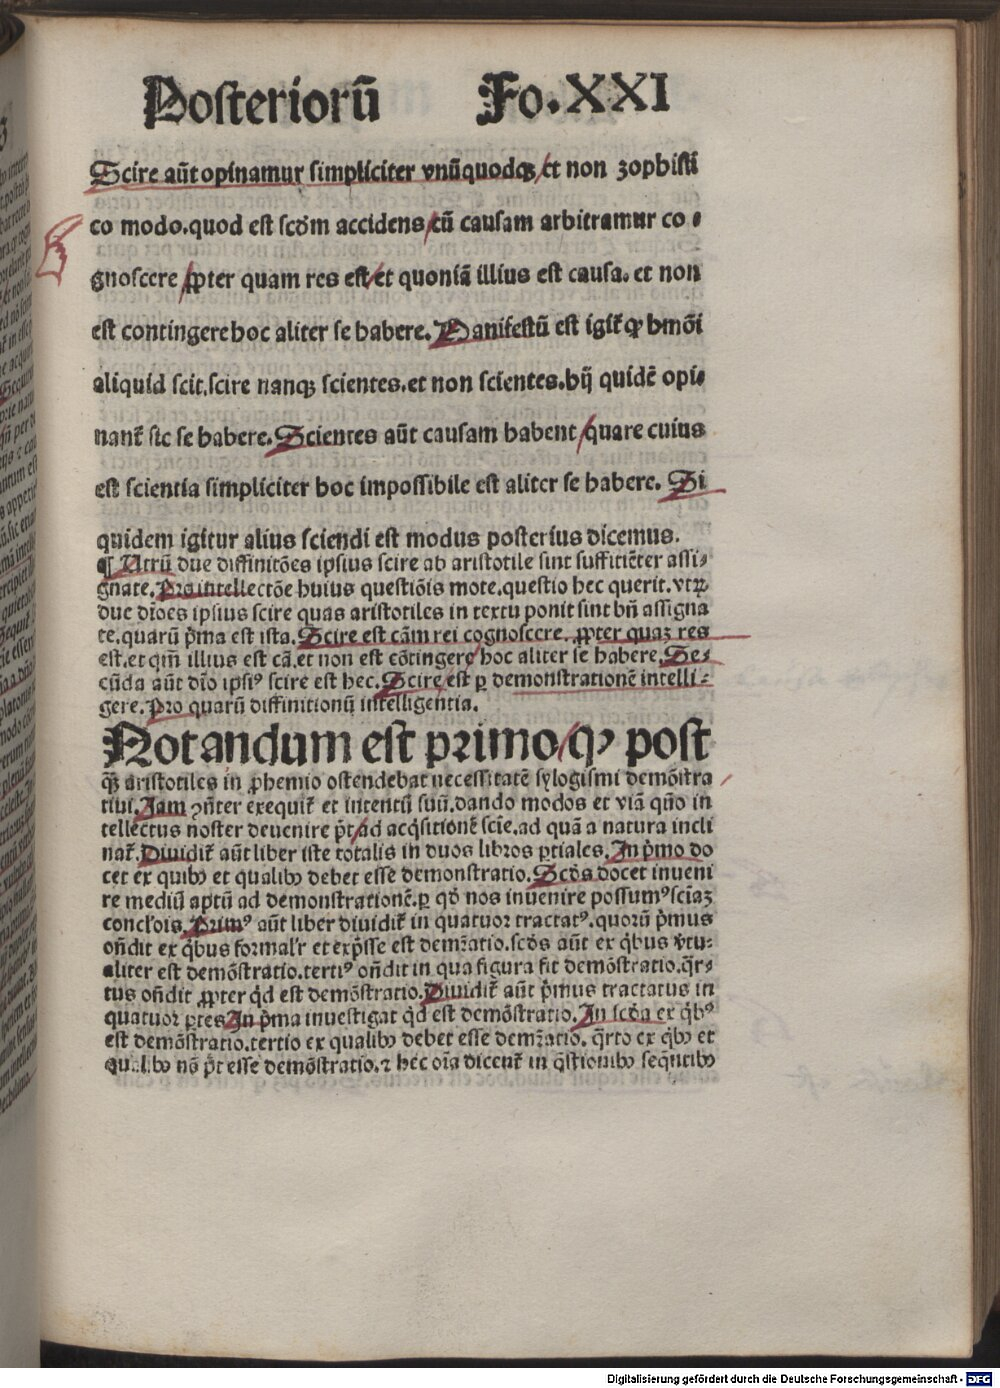 Posteriorū Fo.XXI
Scire aūt opinamur simpliciter vnūquodqȝ et non zophisti
co modo.quod est scōm accidens cū causam arbitramur co⸗
gnoscere ꝓpter quam res est et quoniā illius est causa. et non
est contingere hoc aliter se habere. Manifestū est igit᷑ ꝙ hmōi
aliquid scit.scire nanqȝ scientes.et non scientes.hij quidē opi⸗
nant᷑ sic se habere. Scientes aūt causam habent quare cuius
est scientia simpliciter hoc impossibile est aliter se habere. Si
quidem igitur alius sciendi est modus posterius dicemus.
¶ Utrū due diffinitōes ipsius scire ab aristotile sint suffitiēter assi⸗
gnate. Pro intellectōe huius questiōis mote.questio hec querit.vtꝝ
due dīoes ipsius scire quas aristotiles in textu ponit sint bn̄ assigna
te.quarū p̄ma est ista. Scire est cām rei cognoscere. ꝓpter quaȝ res
est.et qm̄ illius est cā.et non est cōtingere hoc aliter se habere. Se⸗
cūda aūt dīo ipsiꝰ scire est hec. Scire est ꝑ demonstrationē intelli⸗
gere. Pro quarū diffinitionū intelligentia.
Notandum est primo ꝙ post
qȝ aristotiles in ꝓhemio ostendebat necessitatē sylogismi demōstra
tiui. Jam ꝯn̄ter exequit᷑ et intentū suū.dando modos et viā qūo in
tellectus noster deuenire p̄t ad acq̄sitionē scīe.ad quā a natura incli
nat᷑. Diuidit᷑ aūt liber iste totalis in duos libros ꝑtiales. In p̄mo do
cet ex quibꝰ et qualibꝰ debet esse demonstratio. Scd̄s docet inueni
re mediū aptū ad demonstrationē.ꝑ qd̄ nos inuenire possumꝰ sciaȝ
conclōis. Primꝰ aūt liber diuidit᷑ in quatuor tractatꝰ. quorū p̄mus
on̄dit ex q̄bus formal'r et exp̄sse est demr̄atio.scd̄s aūt ex q̄bus v̄tu⸗
aliter est demōstratio.tertiꝰ on̄dit in qua figura fit demōstratio.q̄r⸗
tus on̄dit ꝓpter q̄d est demōstratio. Diuidit᷑ aūt p̄mus tractatus in
quatuor ꝑtes. In p̄ma inuestigat q̄d est demōstratio. In scd̄a ex q̄bꝰ
est demōstratio.tertio ex qualibꝰ debet esse demr̄atio. q̄rto ex q̄bꝰ et
qualibꝰ nō p̄t esse demōstratio.⁊ hec oīa dicent᷑ in q̄stionibꝰ seq̄ntibꝰ
Digitalisierung gefördert durch die Deutsche Forschungsgemeinschaft - DFG